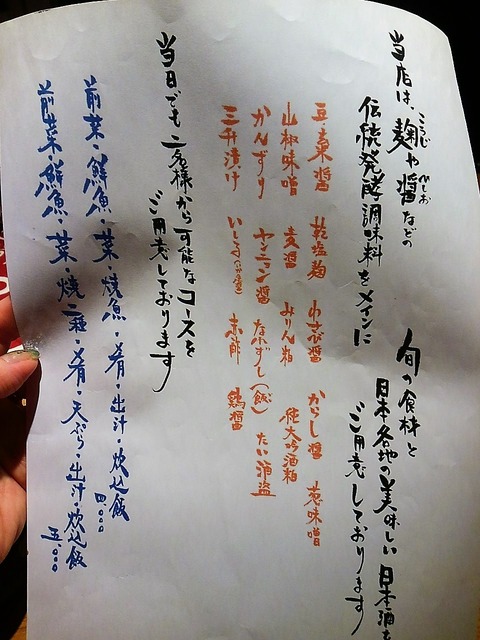 当店は、麹や醤などの
伝統発酵調味料をメインに
旬の食材と
日本各地の美味しい日本酒を
ご用意しております
豆板醤 乾塩麹 わさび醤 からし醤 葱味噌
山椒味噌 麦醤 みりん粕 純大吟酒粕
かんずり ヤンニョン醤 なれずし(飯) たい酒盗
三升漬け いしる(いか魚醤) 赤酢 鶏醤
当日でも二名様から可能なコースを
ご用意しております
前菜・鮮魚 菜・焼魚・肴・出汁・炊込飯 四,〇〇〇
前菜・鮮魚 菜・焼二種・肴・天ぷら・出汁・炊込飯 五,〇〇〇